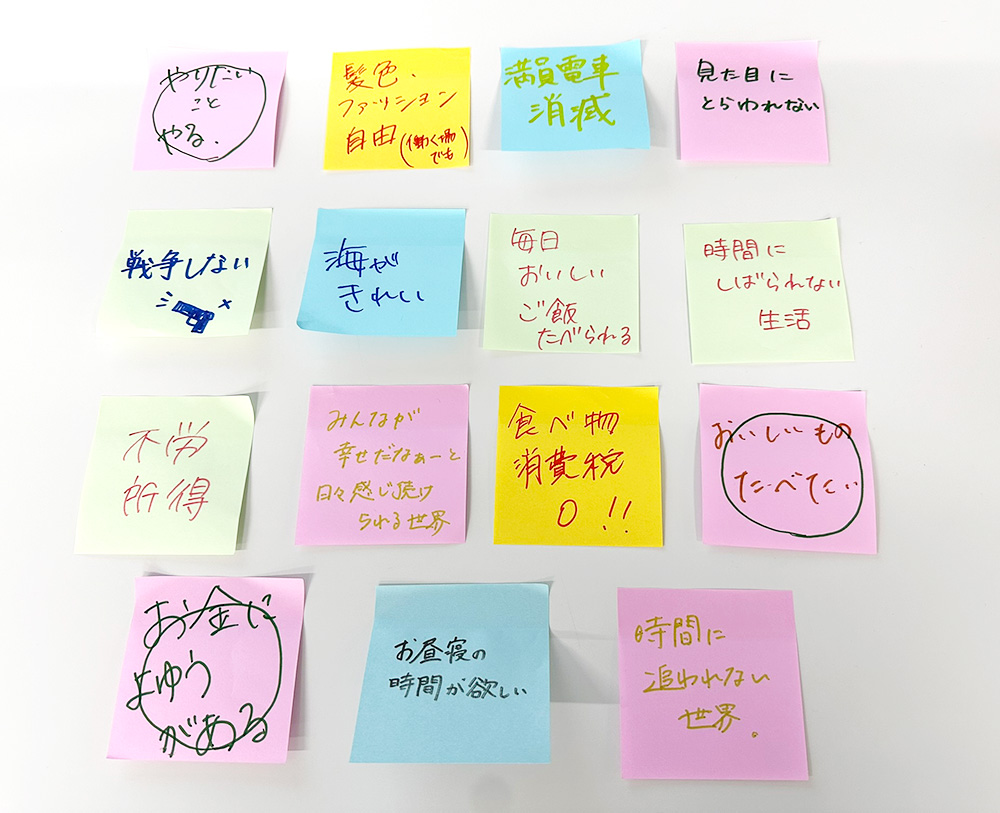 やりたい
こと
やる.
髪色.
ファッション
自由(働く場
でも)
満員電車
消滅
見た目に
とらわれない
戦争しない
海が
きれい
毎日
おいしい
ご飯
たべられる
時間に
しばられない
生活
不労
所得
みんなが
幸せだなぁーと
日々感じ続け
られる世界
食べ物
消費税
0!!
おいしいもの
たべたい
お金に
よゆう
がある
お昼寝の
時間が欲しい
時間に
追われない
世界.